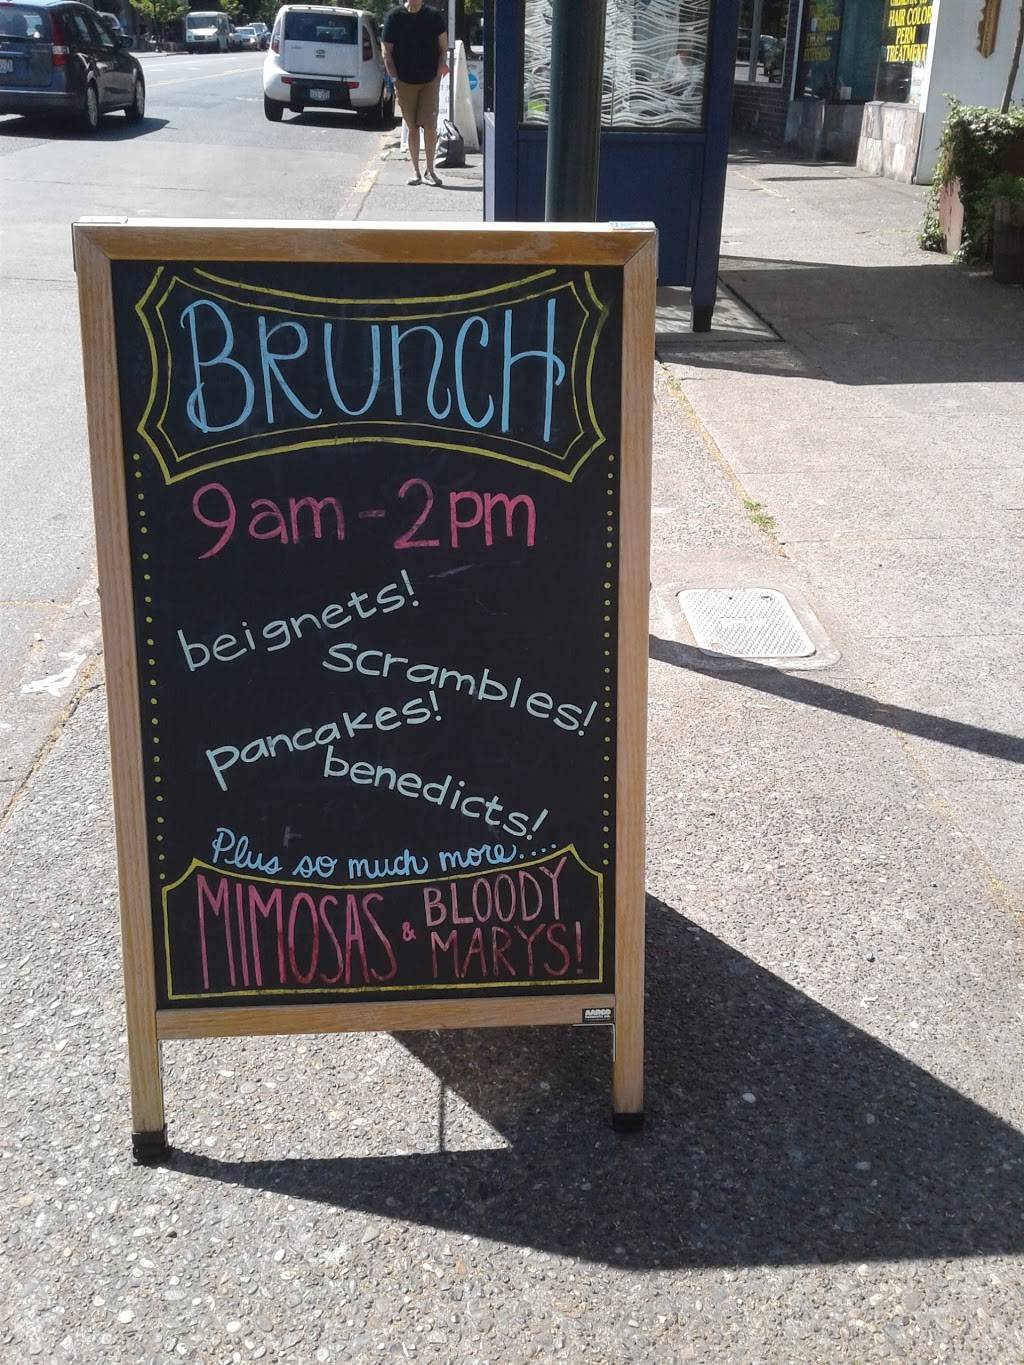 BRUNCH
9am - 2pm
beignets!
scrambles!
pancakes!
benedicts!
Plus so much more....
MIMOSAS & BLOODY MARYS!
AARCO
HAIR COLOR
PERM
TREATMENT